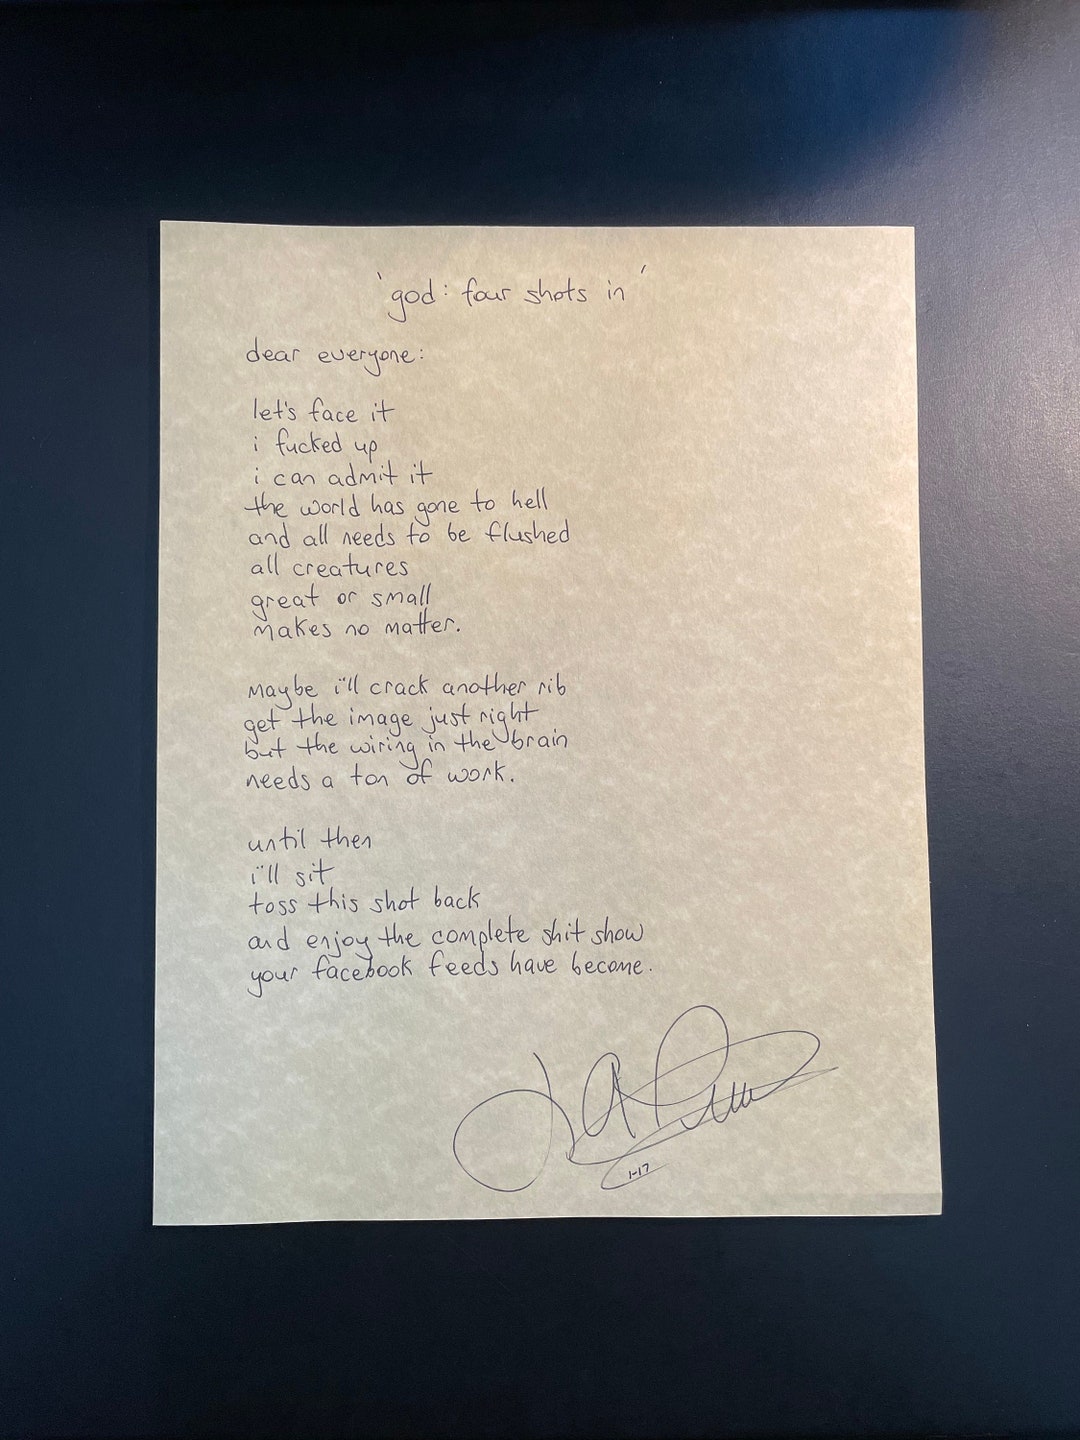 'god: four shots in'
dear everyone:
let's face it
i fucked up
i can admit it
the world has gone to hell
and all needs to be flushed
all creatures
great or small
makes no matter.
maybe i'll crack another rib
get the image just right
but the wiring in the brain
needs a ton of work.
until then
i'll sit
toss this shot back
and enjoy the complete shit show
your facebook feeds have become.
1-17